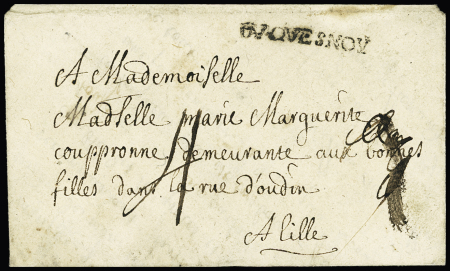 DUQUESNOY
A Mademoiselle
Madselle marie Marguerite
couppronne demeurante aux bonnes
filles dans la rue d'oudin
A lille